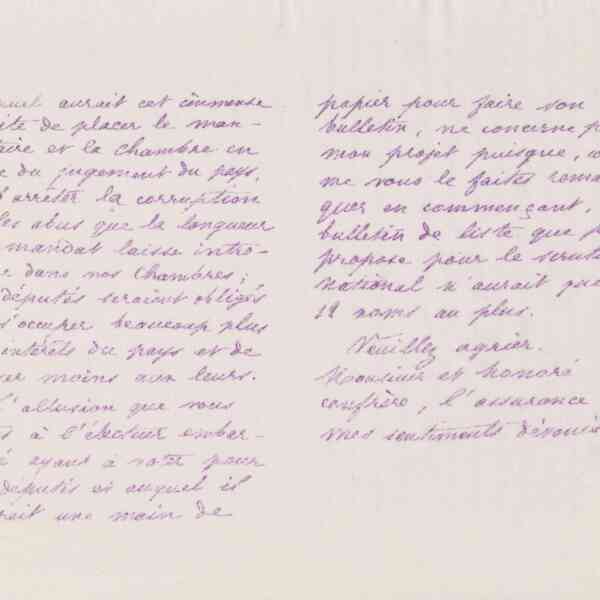 aurait cet immense
ité de placer le man-
taire et la Chambre en
e du jugement du pays,
d'arrêter la corruption
les abus que la longueur
mandat laisse intro-
e dans nos Chambres;
députés seraient obligés
s'occuper beaucoup plus
intérêts du pays et de
er moins aux leurs.
l'allusion que vous
s à l'électeur embar-
é ayant à voter pour
députés et auquel il
rait une main de
papier pour faire son
bulletin, ne concerne p
mon projet puisque, co
me vous le faites remar
quer en commençant,
bulletin de liste que j
propose pour le scrutin
National n'aurait que
12 noms au plus.
Veuillez agréer.
Monsieur et honoré
confrère, l'assurance
mes sentiments dévoués